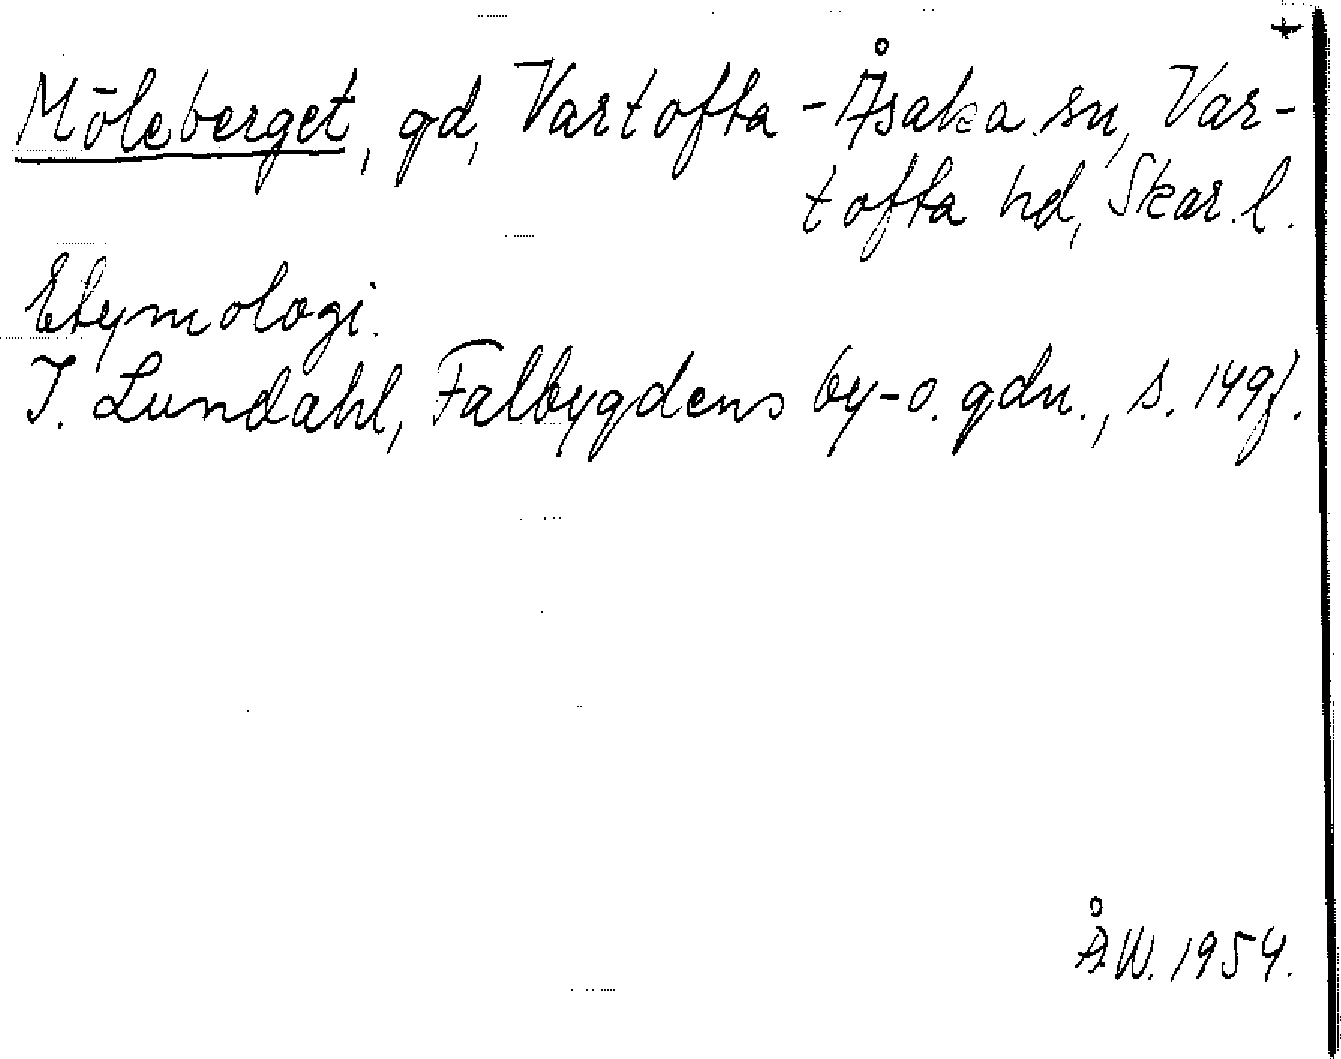 +
Möleberget, gd, Vartofta-Åsaka sn, Var-
tofta hd, Skar. l.
Etymologi.
I. Lundahl, Falbygdens by- o. gdn., s. 149f.
Å.W. 1954.